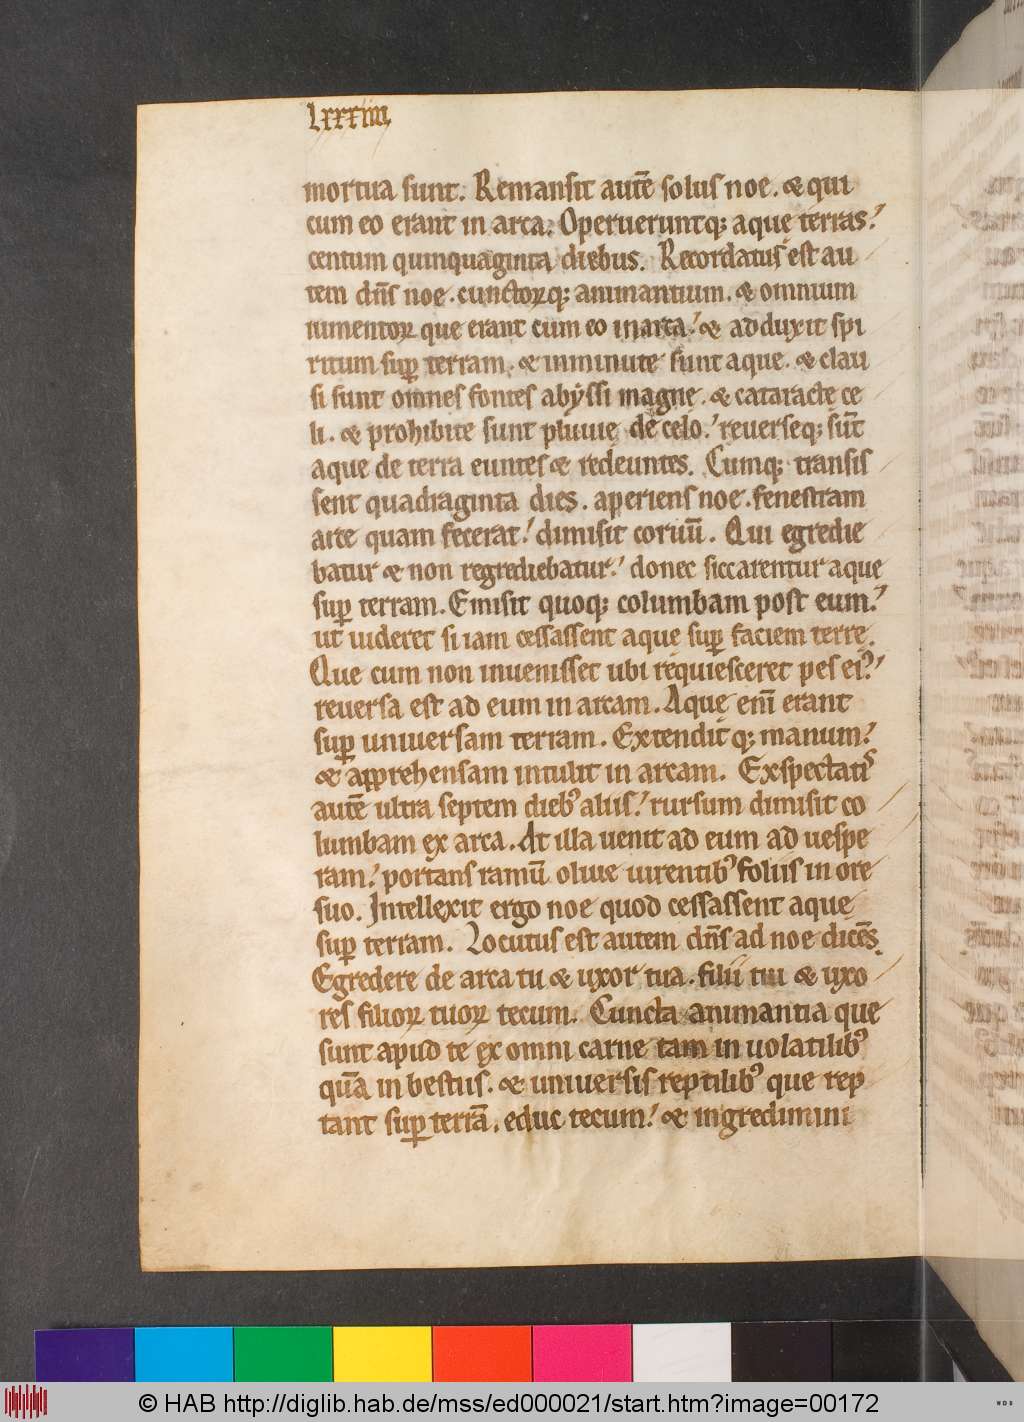 lxxxiiii
mortua sunt. Remansit autē solus noe. & qui
cum eo erant in arca. Operueruntq; aquę terras:
centum quinquaginta diebus. Recordatus est au
tem dn̄s noe. cunctoꝝq; animantium. & omnium
iumentoꝝ que erant cum eo in arca: & adduxit spi
ritum suꝑ terram. & inminute sunt aque. & clau
si sunt omnes fontes abyssi magnę. & cataracte ce
li. & prohibite sunt pluuię de celo: reuerseq; sūt
aque de terra euntes & redeuntes. Cumq; transis
sent quadraginta dies. aperiens noe. fenestram
arce quam fecerat: dimisit coruū. Qui egredie
batur & non regrediebatur: donec siccarentur aque
suꝑ terram. Emisit quoq; columbam post eum:
ut uideret si iam cessassent aque suꝑ faciem terrę.
Que cum non inuenisset ubi requiesceret pes eiꝰ:
reuersa est ad eum in arcam. Aquę enī erant
suꝑ uniuersam terram. Extendit q; manum:
& apprehensam intulit in arcam. Exspectatis
autē ultra septem diebꝰ aliis: rursum dimisit co
lumbam ex arca. At illa uenit ad eum ad uespe
ram: portans ramū oliue uirentibꝰ foliis in ore
suo. Intellexit ergo noe quod cessassent aquę
suꝑ terram. Locutus est autem dn̄s ad noe dicēs.
Egredere de arca tu & uxor tua. filii tui & uxo
res filioꝝ tuoꝝ tecum. Cuncta animantia que
sunt apud te ex omni carne tam in uolatilibꝰ
quā in bestiis. & uniuersis reptilibꝰ que rep
tant suꝑ terrā. educ tecum: & ingredimini
© HAB http://diglib.hab.de/mss/ed000021/start.htm?image=00172